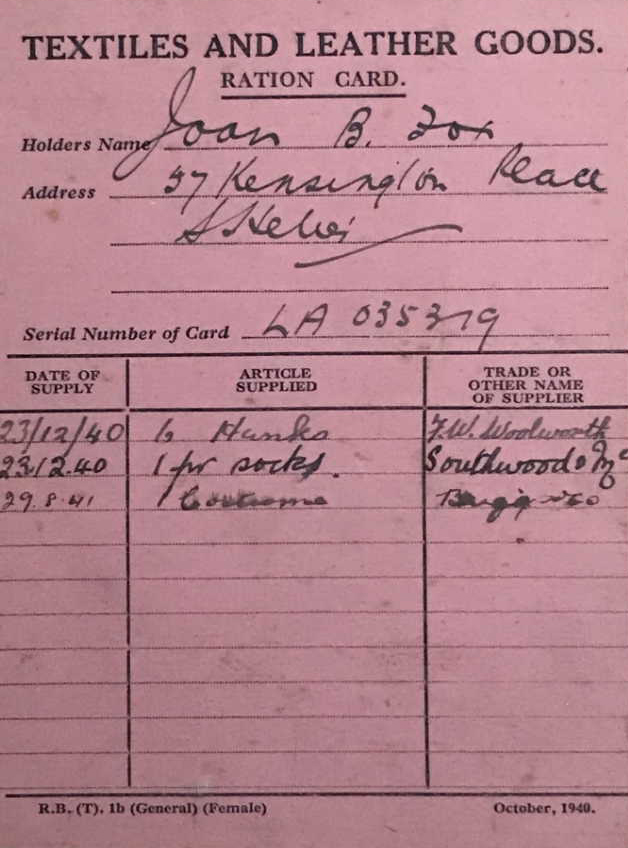 TEXTILES AND LEATHER GOODS.
RATION CARD.
Holders Name Joan B. Fox
Address 37 Kensington Place
S Helier
Serial Number of Card LA 035379
DATE OF SUPPLY ARTICLE SUPPLIED TRADE OR OTHER NAME OF SUPPLIER
23/12/40 6 Hanks F.W. Woolworth
23.12.40 1 pr socks. Southwood
29.8.41 1 Costume
R.B. (T). 1b (General) (Female) October, 1940.